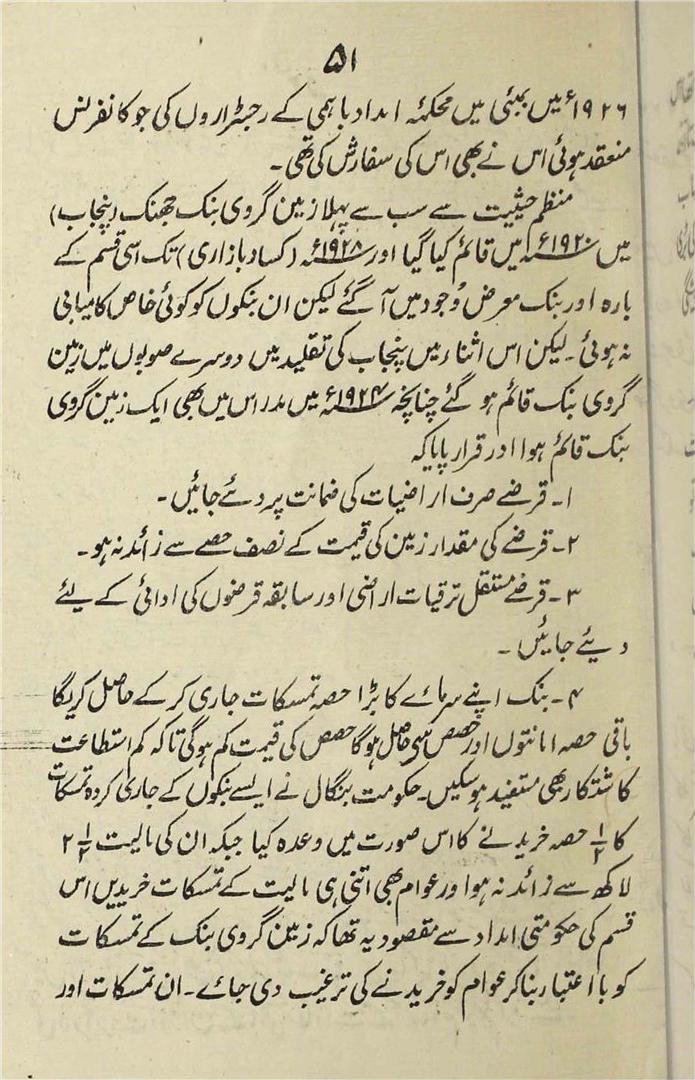 ۵۱
۱۹۲۶ء میں بمبئی میں محکمۂ امداد باہمی کے رجسٹراروں کی جو کانفرنس
منعقد ہوئی اس نے بھی اس کی سفارش کی تھی۔
منظم حیثیت سے سب سے پہلا زمین گروی بنک جھنک (پنجاب)
میں ۱۹۲۰ء میں قائم کیا گیا اور ۱۹۲۸ء (کساد بازاری) تک اسی قسم کے
بارہ اور بنک معرض وُجود میں آ گئے لیکن ان بنکوں کو کوئی خاص کامیابی
نہ ہوئی۔ لیکن اس اثناء میں پنجاب کی تقلید میں دوسرے صوبوں میں زمین
گروی بنک قائم ہو گئے چنانچہ ۱۹۲۴ء میں مدراس میں بھی ایک زمین گروی
بنک قائم ہوا اور قرار پایا کہ
۱۔ قرضے صرف اراضیات کی ضمانت پر دئے جائیں۔
۲۔ قرضے کی مقدار زمین کی قیمت کے نصف حصے سے زائد نہ ہو۔
۳۔ قرضے مستقل ترقیات اراضی اور سابقہ قرضوں کی ادائی کے لیئے
دیئے جایئں۔
۴۔ بنک اپنے سرمائے کا بڑا حصہ تمسکات جاری کر کے حاصل کریگا
باقی حصہ امانتوں اور حصص سے حاصل ہوگا حصص کی قیمت کم ہوگی تاکہ کم استطاعت
کاشتکار بھی مستفید ہو سکیں۔ حکومت بنگال نے ایسے بنکوں کے جاری کردہ تمسکات
کا ½ حصہ خریدنے کا اس صورت میں وعدہ کیا جبکہ ان کی مالیت ۲½
لاکھ سے زائد نہ ہو اور عوام بھی اتنی ہی مالیت کے تمسکات خریدیں اس
قسم کی حکومتی امداد سے مقصود یہ تھا کہ زمین گروی بنک کے تمسکات
کو با اعتبار بنا کر عوام کو خریدنے کی ترغیب دی جائے۔ ان تمسکات اور